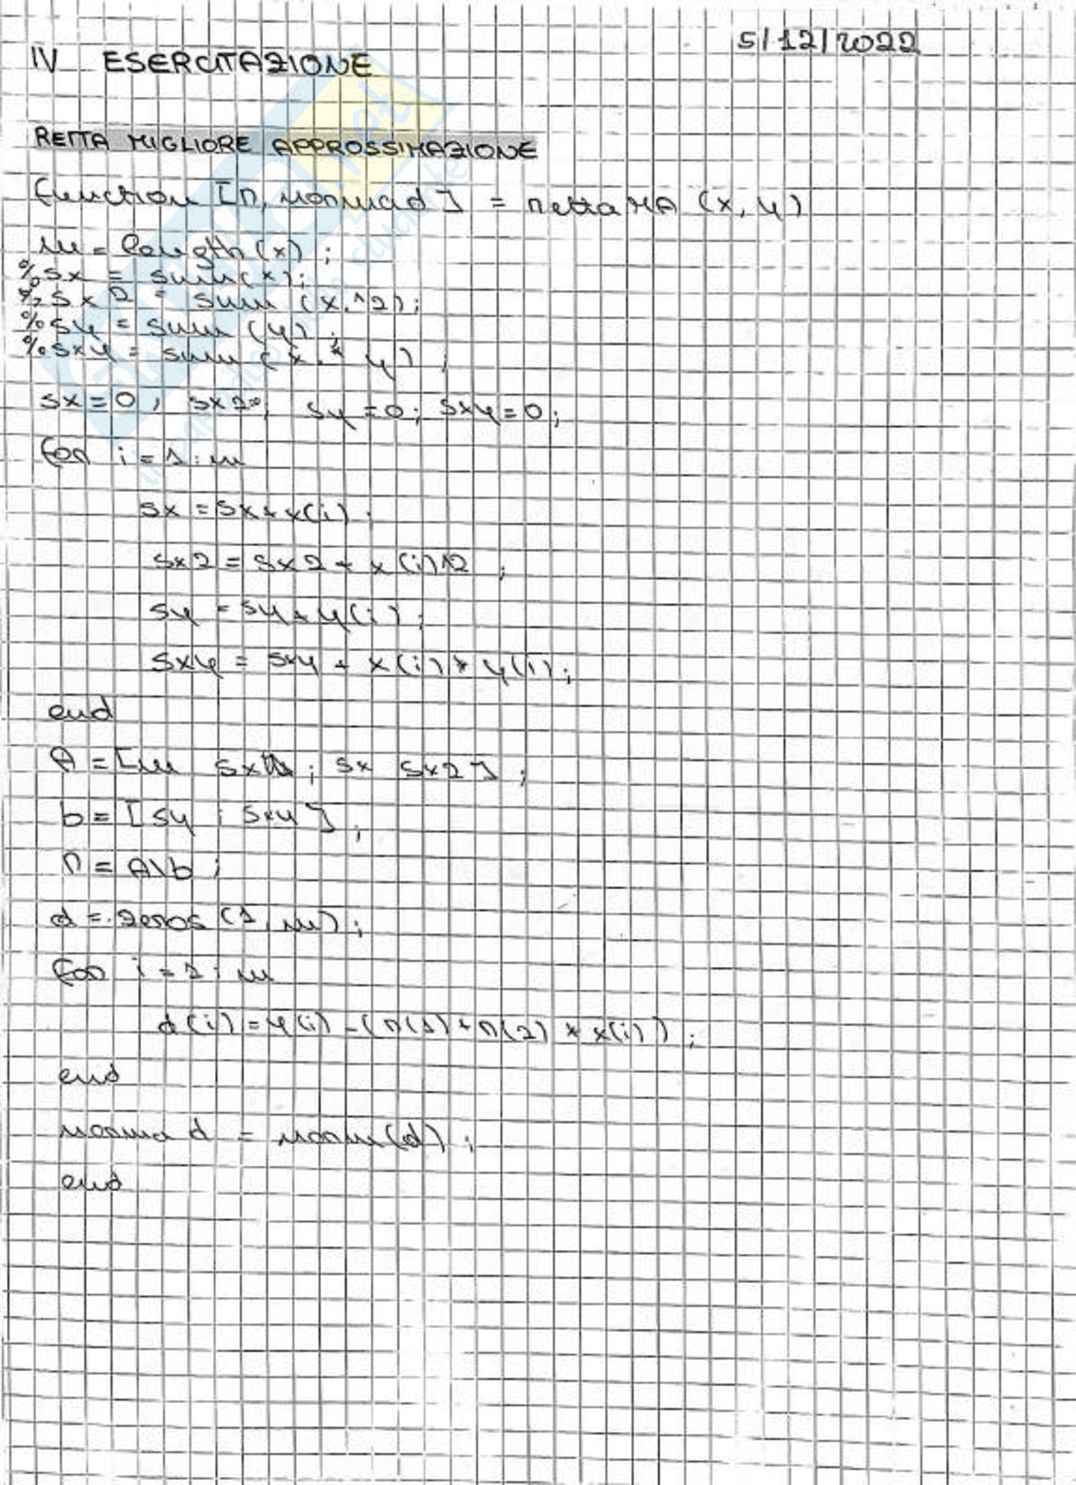 5/12/2022
IV ESERCITAZIONE
RETTA MIGLIORE APPROSSIMAZIONE
function [r, normad] = rettaMA (x, y)
m = length(x);
%sx = sum(x);
%sx2 = sum (x.^2);
%sy = sum (y);
%sxy = sum (x.* y);
sx=0; sx2=; sy=0; sxy=0;
for i=1:m
sx = sx+x(i);
sx2 = sx2 + x(i)^2 ;
sy = sy+y(i);
sxy = sxy + x(i)*y(i);
end
A=[m sx ; sx sx2];
b=[sy ; sxy];
r=A\b;
d=zeros(1,m);
for i=1:m
d(i)=y(i)-(r(1)+r(2)*x(i));
end
norma d = norm(d);
end